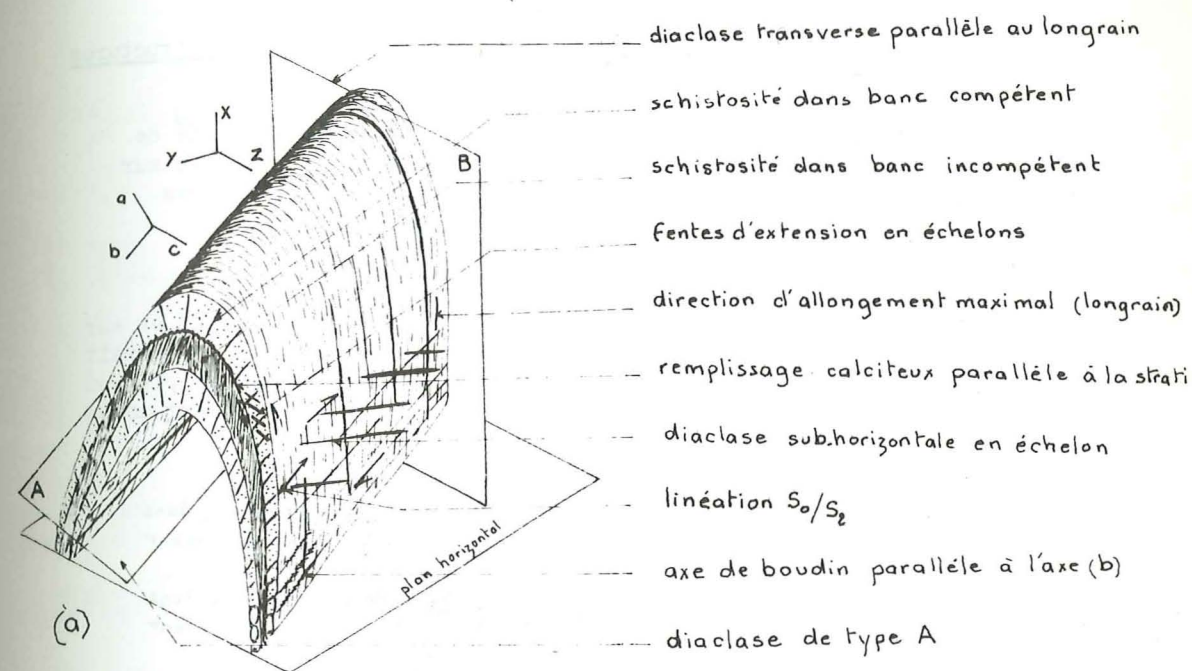 diaclase transverse parallèle au longrain
schistosité dans banc compétent
schistosité dans banc incompétent
fentes d'extension en échelons
direction d'allongement maximal (longrain)
remplissage calciteux parallèle à la strati
diaclase sub.horizontale en échelon
linéation S₀/S₂
axe de boudin parallèle à l'axe (b)
diaclase de type A
X
Y
Z
a
b
c
B
A
plan horizontal
(a)